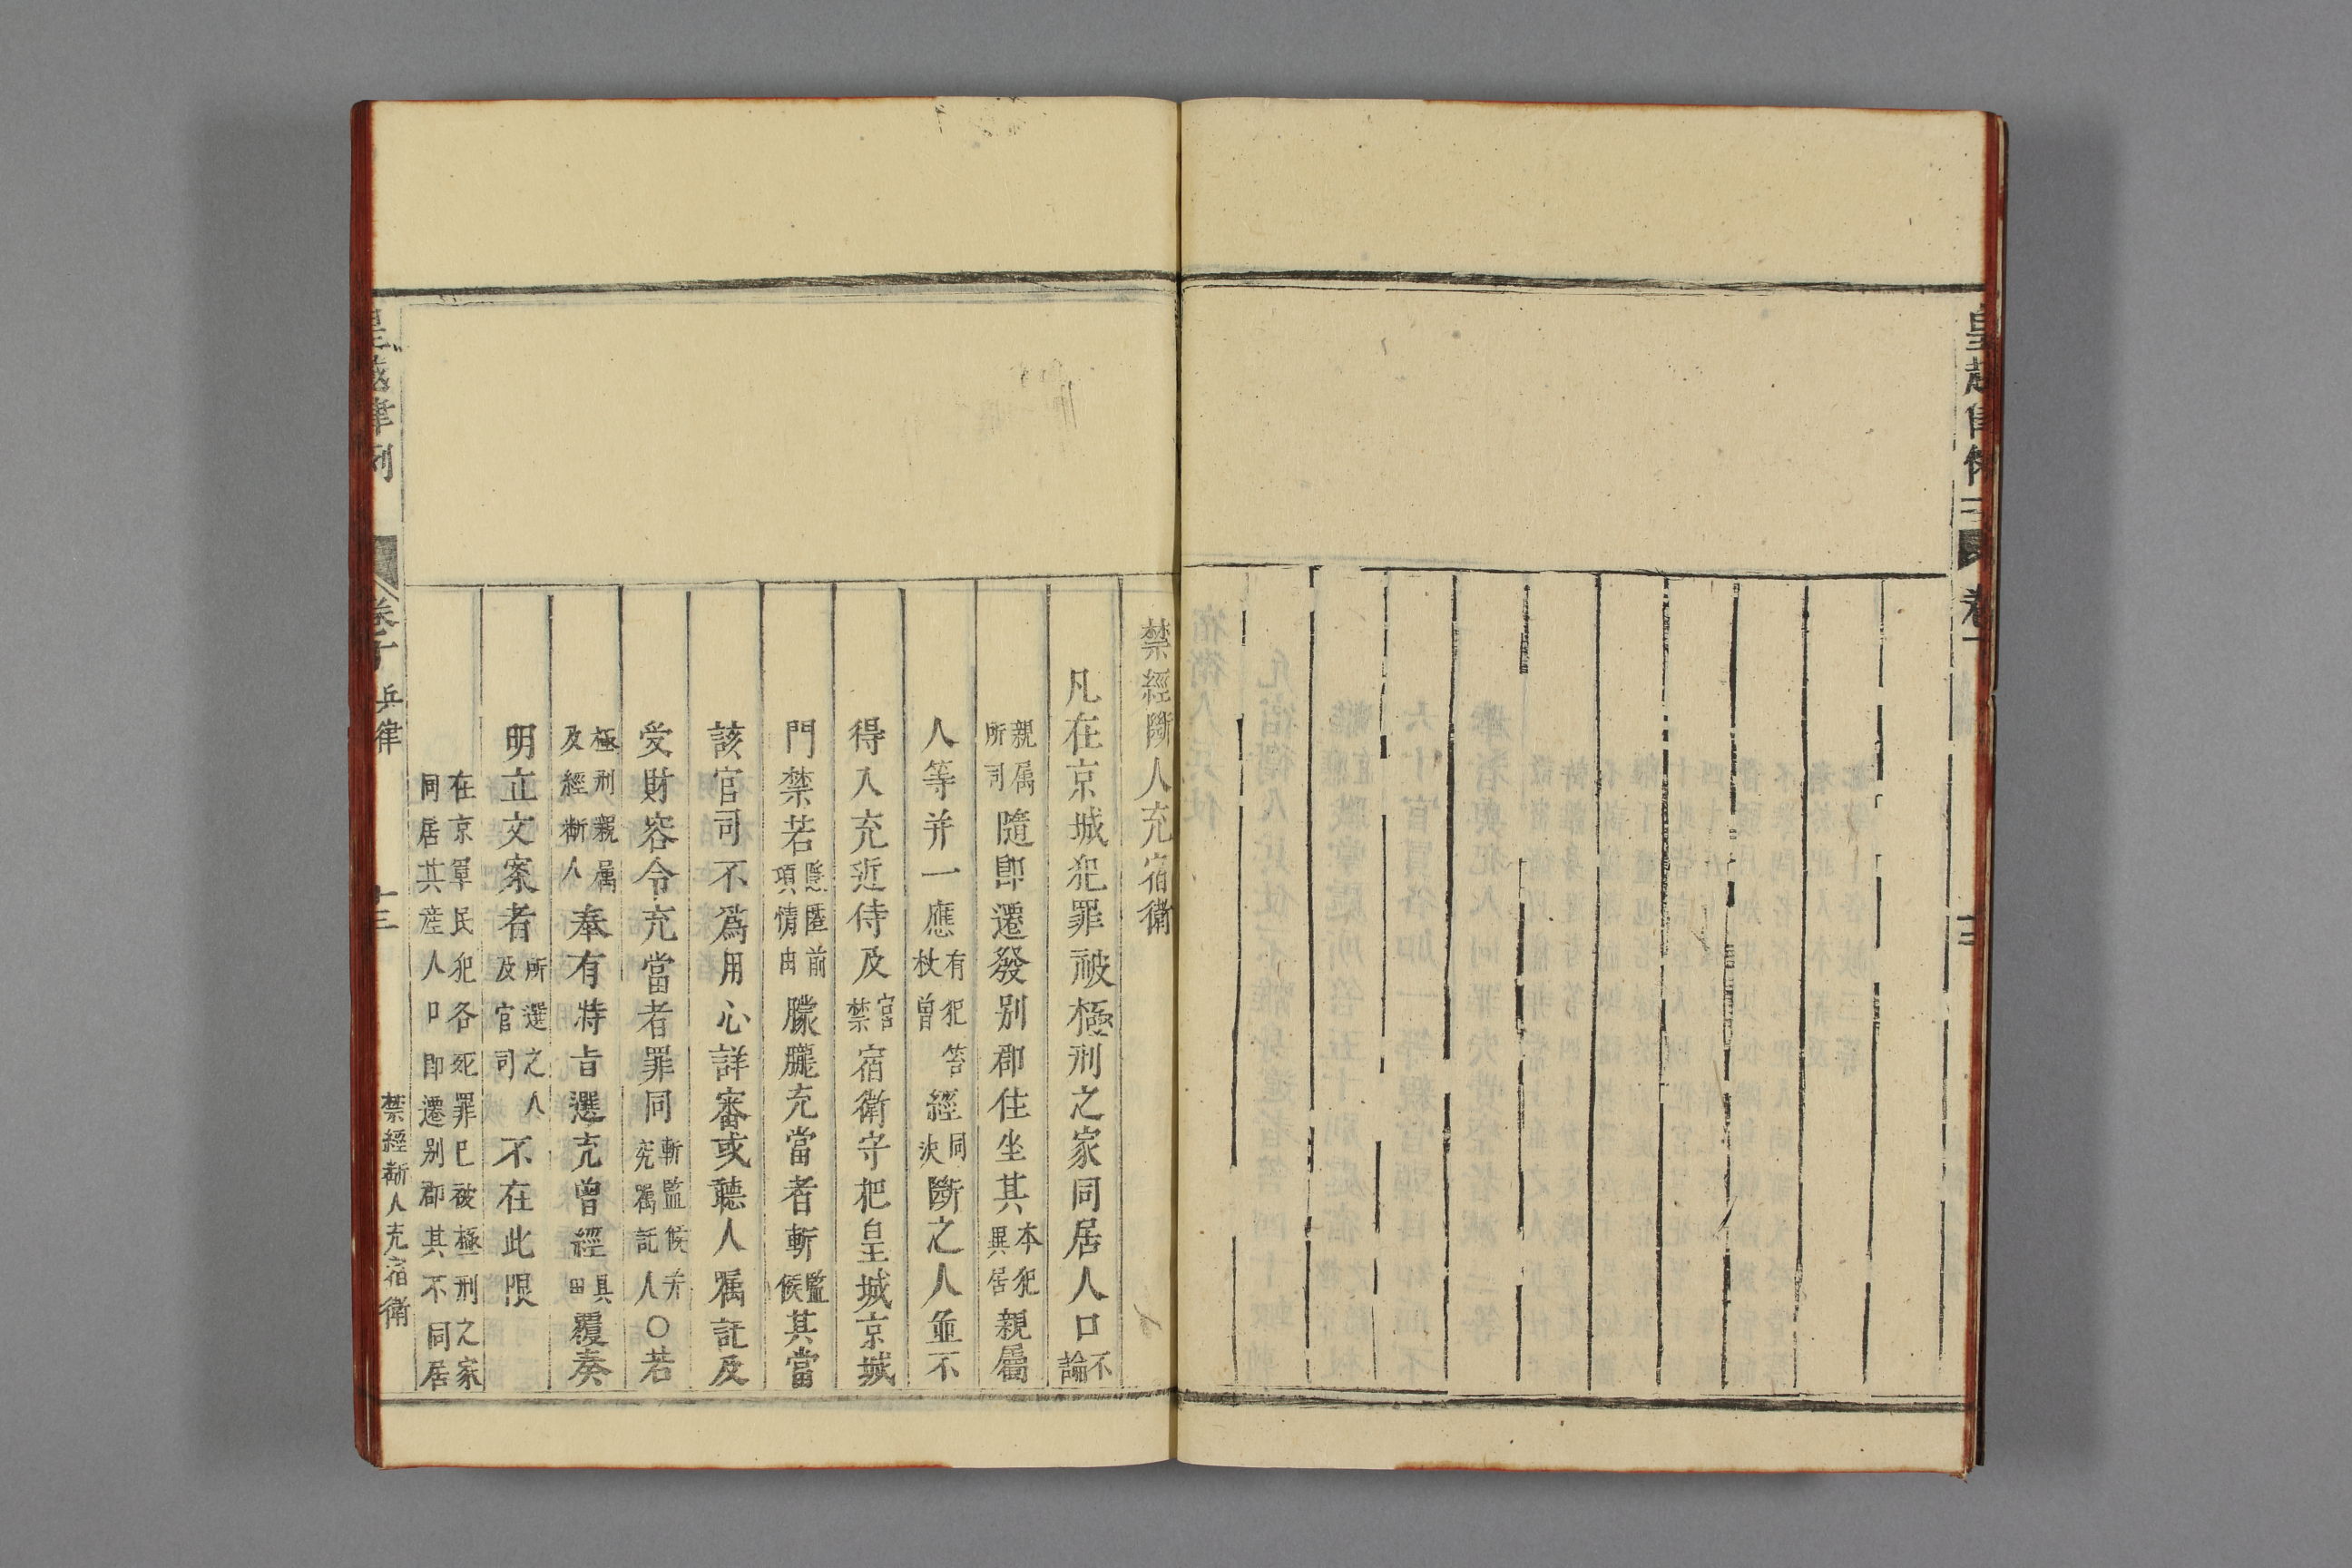 禁經斷人充宿衛
凡在京城犯罪被極刑之家同居人口不論
親属所司隨卽遷發別郡住坐其本犯異居親屬
人等并一應有犯笞杖曾經同決斷之人並不
得入充近侍及宮禁宿衛守把皇城京城
門禁若隱匿前項情由朦朧充當者斬監候其當
該官司不爲用心詳審或聽人囑託及
受財容令充當者罪同斬監候并究囑託人〇若
極刑親属及經斷人奉有特旨選充曾經具由覆奏
明立文案者所選之人及官司不在此限
在京軍民犯各死罪已被極刑之家
同居其産人口卽遷別郡其不同居
皇越律例
卷十 兵律
十三
禁經斷人充宿衛